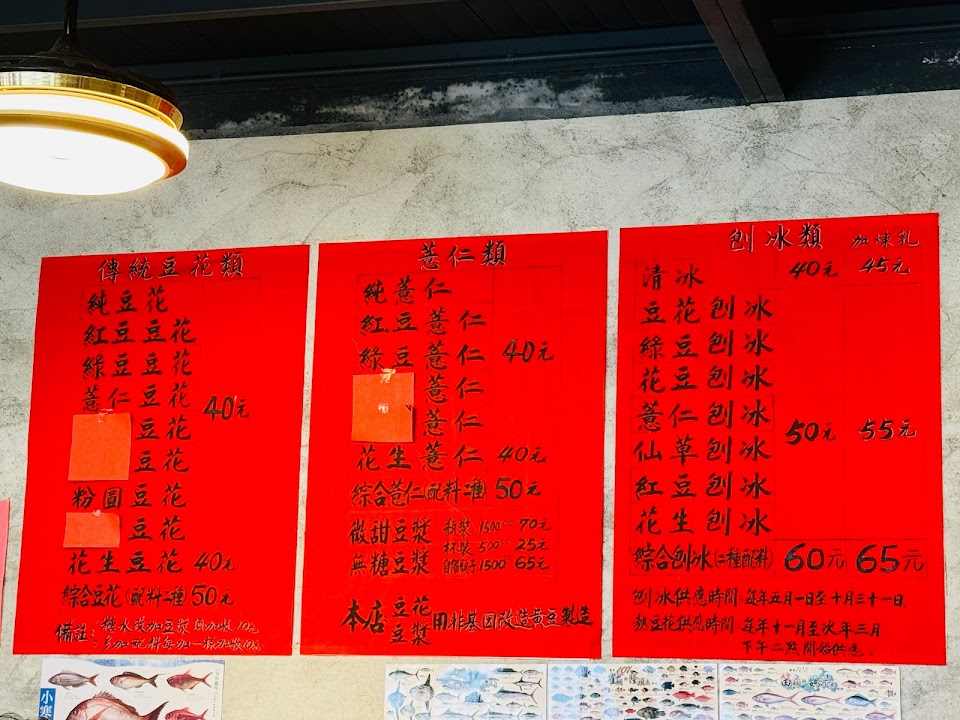 傳統豆花類
純豆花
紅豆豆花
綠豆豆花
薏仁豆花
豆花
40元
豆花
粉圓豆花
豆花
花生豆花 40元
綜合豆花(配料二種 50元
備註:糖水改加豆漿 10元
多加配料每加一樣加收10元
薏仁類
純薏仁
紅豆薏仁
綠豆薏仁 40元
薏仁
薏仁
花生薏仁 40元
綜合薏仁(配料二種) 50元
微甜豆漿 瓶裝1500cc 70元
杯裝500cc 25元
無糖豆漿 自備瓶子1500cc 65元
本店豆花豆漿用非基因改造黃豆製造
刨冰類 加煉乳
清冰 40元 45元
豆花刨冰
綠豆刨冰
花豆刨冰
薏仁刨冰
50元 55元
仙草刨冰
紅豆刨冰
花生刨冰
綜合刨冰(二種配料) 60元 65元
刨冰供應時間:每年五月一日至十月三十一日.
熱豆花供應時間:每年十一月至次年三月
下午二點開始供應.
小寒